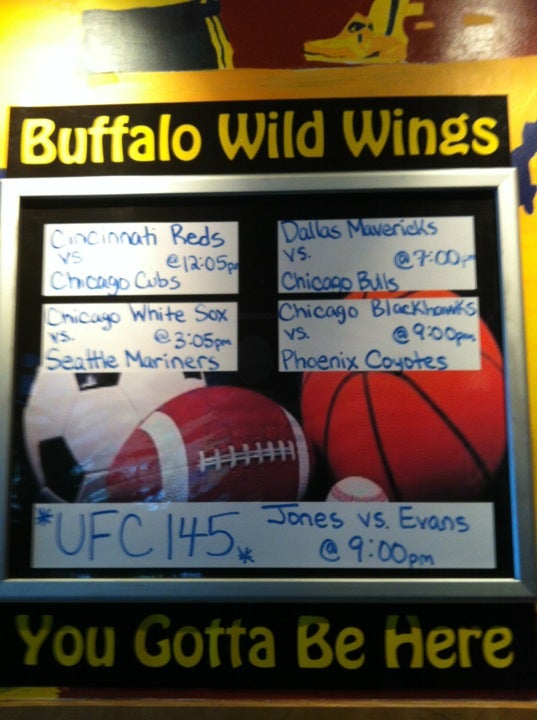 Buffalo Wild Wings
Cincinnati Reds
vs @12:05pm
Chicago Cubs
Dallas Mavericks
vs. @7:00pm
Chicago Bulls
Chicago White Sox
vs. @3:05pm
Seattle Mariners
Chicago Blackhawks
vs. @9:00pm
Phoenix Coyotes
*UFC 145*
Jones vs. Evans
@ 9:00pm
You Gotta Be Here